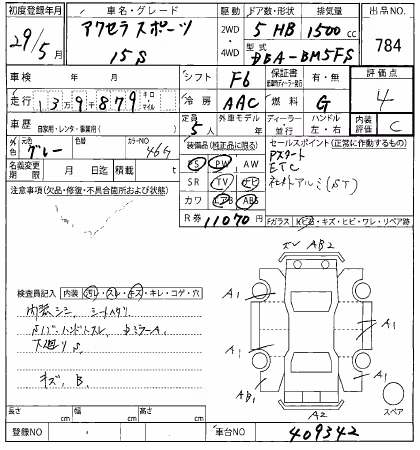 初度登録年月
車名・グレード
駆動
ドア数・形状
排気量
出品NO.
29/5月
アクセラスポーツ
15S
2WD
・
4WD
5 HB
1500cc
型式
DBA-BM5FS
784
車検 年 月
シフト F6
保証書
有・無
評価点
4
走行 13万9千879
キロ
マイル
冷房 AAC
燃料 G
車歴
自家用・レンタ・事業用( )
定員
5人
外車モデル
年
ディーラー
並行
ハンドル
左・右
内装
評価
C
外色
元色
グレー
色替
カラーNO
46G
装備品(純正品に限る)
PS PW AW
SR TV ナビ
カワ エアB ABS
セールスポイント(正常に作動するもの)
Pスタート
ETC
名義変更
期限
月 日迄
積載 t
R券 11070円
Fガラス
・キズ・ヒビ・ワレ・リペア跡
注意事項(欠品・修復・不具合箇所および状態)
AB2
A1
A1
A1
A1
AB1
A1
A2
スペア
検査員記入
内装
汚レ・スレ・キズ・キレ・コゲ・穴
内装シミ、シートヘタリ
下廻りS
キズ、B
長さ cm
幅 cm
高さ cm
登録NO
車台NO
409342